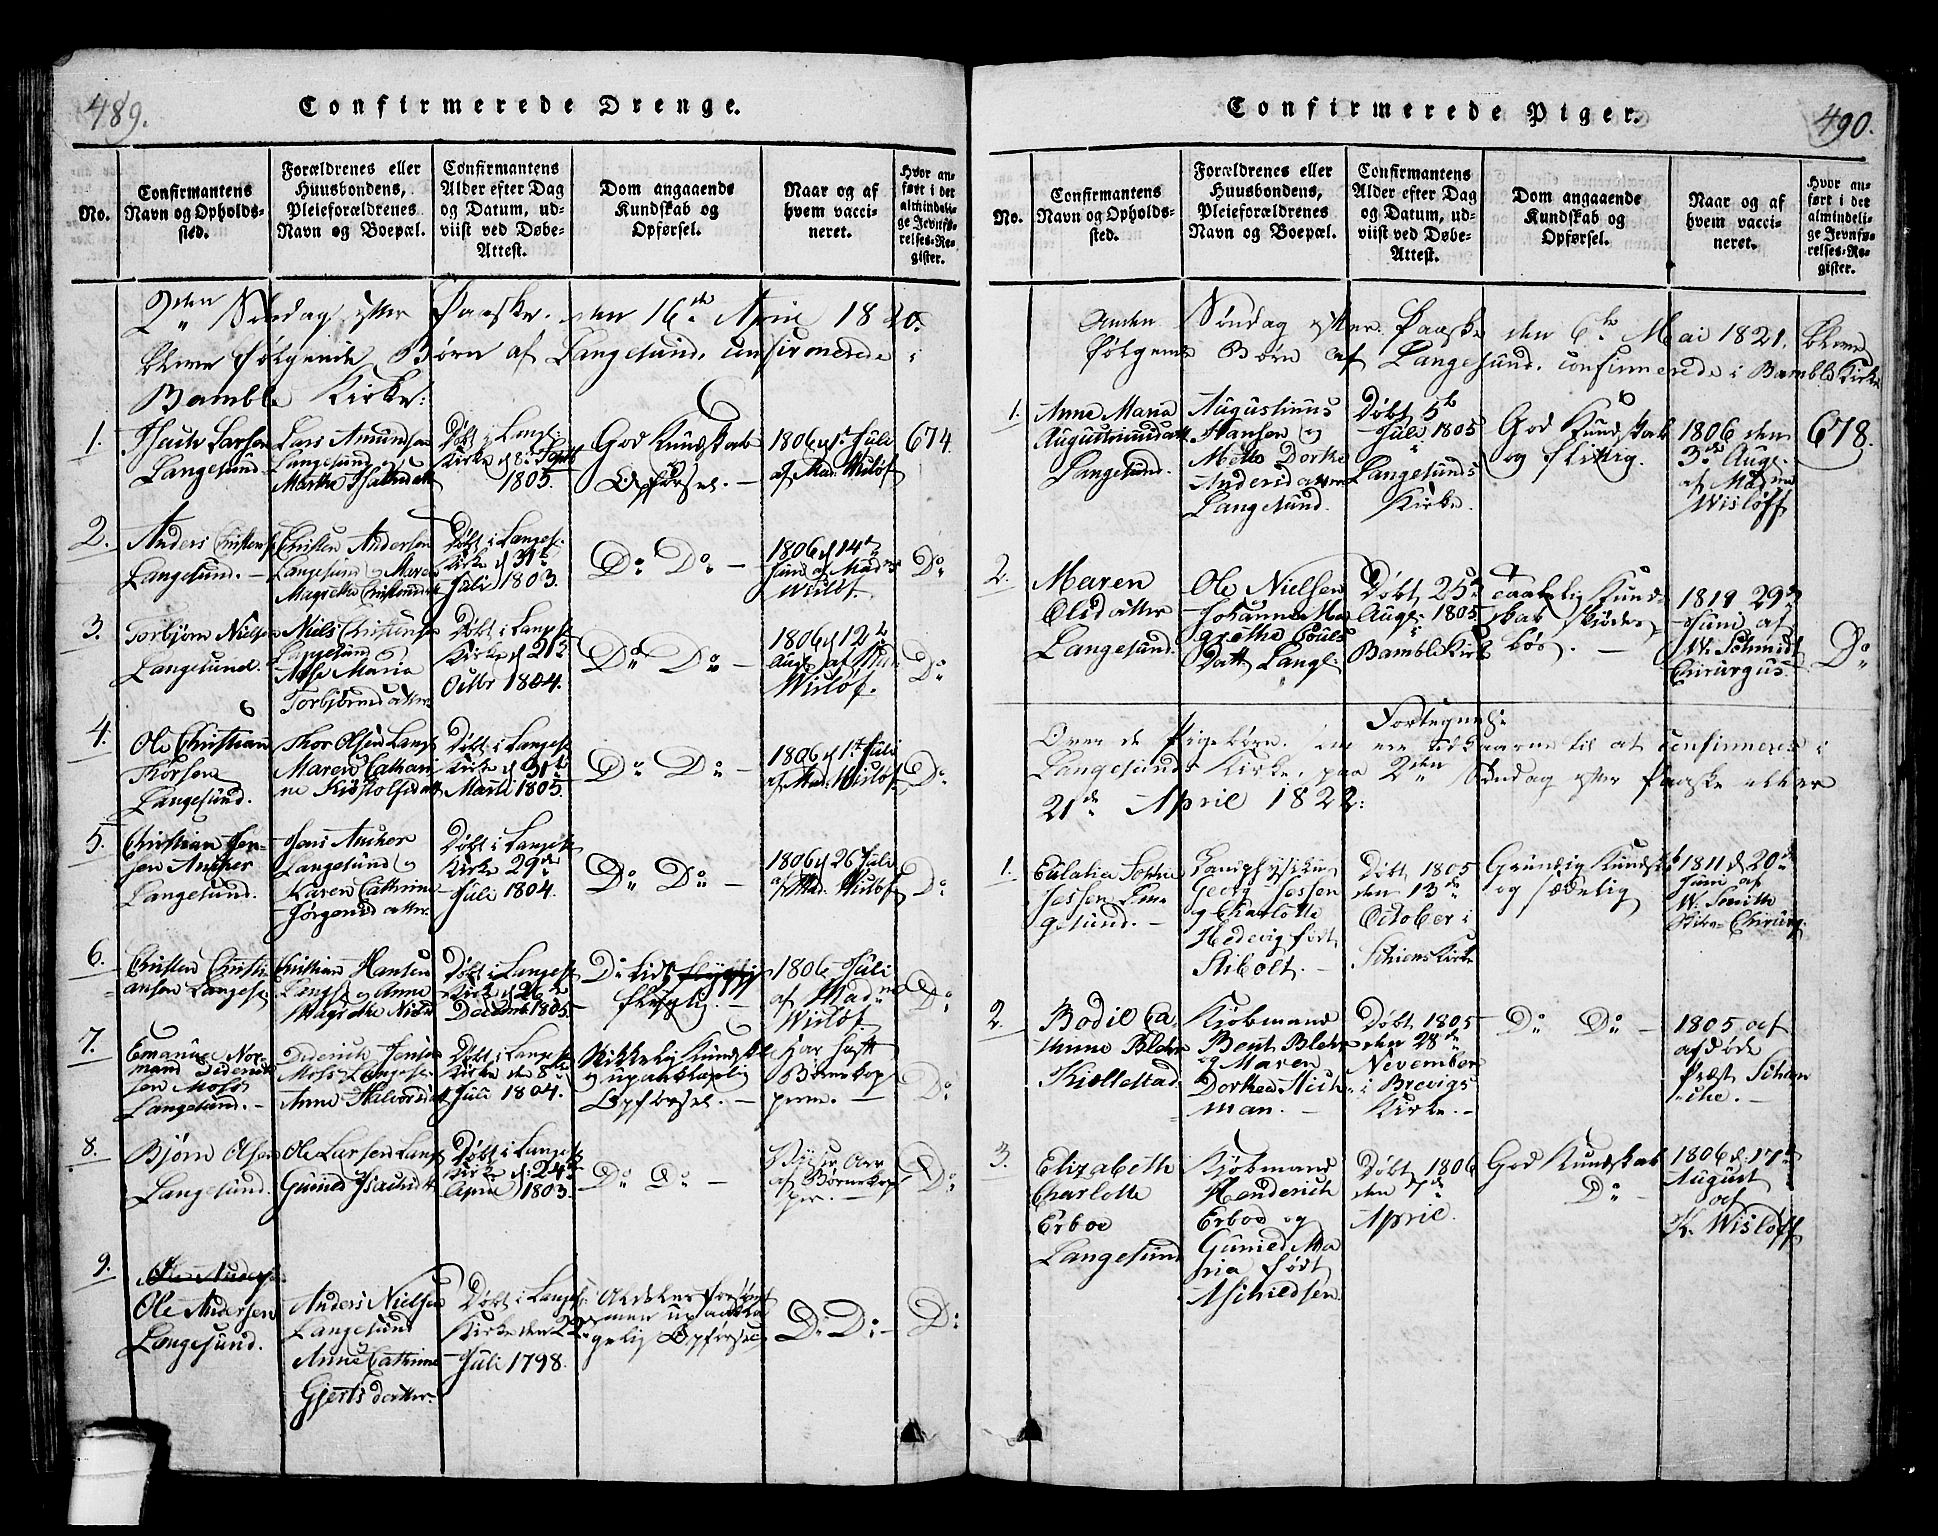 489.
Confirmerede Drenge.
No.
Confirmantens
Navn og Opholds-
sted.
Forældrenes eller
Huusbondens,
Pleieforældrenes
Navn og Boepæl.
Confirmantens
Alder efter Dag
og Datum, ud-
viist ved Døbe-
Attest.
Dom angaaende
Kundskab og
Opførsel.
Naar og af
hvem vacci-
neret.
Hvor an-
ført i det
almindeli-
ge Jevnfø-
relses-Re-
gister.
2den Søndag efter Paaske. den 16de April 1820.
bleve følgende Børn af Langesund, confirmerede i
Bamble Kirke:
1.
Larsen
Langesund
Lars Amundsen
Langesund
Døbt i Lang:
Kirke d. 8de Septb
1805.
God Kundskab
og
Opførsel. –
1806 d 1ste Juli
af Mad. Wisløf
674.
2.
Anders Christens
Langesund. –
Christen Andersen
Langesund og Maren
Magrethe Christensd
Døbt i Langes:
Kirke d 31te
Juli 1803.
Do Do –
1806 d 14de
Juni af Mad.
Wisløf.
Do
3.
Torbjørn Nielsen
Langesund.
Niels Christensen
Langesund og
Maria
Torbjørnsdatter
Døbt i Langes
Kirke d 21de
Octbr 1804.
Do Do –
1806 d 12te
Aug af Mad
Wisløf.
Do
4.
Ole Christian
Thorsen
Langesund.
Thor Olsen Langes
Maren Cathari
ne
Døbt i Langes
Kirke d 31te
Marti 1805.
Do Do –
1806 d 1ste Juli
af Mad. Wisløf
Do
5.
Christian Jen-
sen Ancher
Langesund.
Jens Ancher
Langesund og
Karen Cathrine
Jørgensdatter
Døbt i Langes
Kirke 29de
Juli 1804.
Do Do –
1806 d 26 Juli
af Mad. Wisløf
Do
6.
Christen Christi
ansen Langes
Christian Hansen
Langs og Anne
Magrethe
Døbt i Langes
Kirke d 26de
Decemb 1805.
Do
flittig. –
1806 Juli
af Madme
Wisløf.
Do
7.
Emanuel Nor-
mand Diderich
sen Moss
Langesund. –
Diderich Jensen
Moss Langes
Anne Halvorsd
Døbt i Langes
Kirke den 8de
Juli 1804.
Kundskab
og upaaklagelig
Opførsel. –
Har haft
Børnekop
perne. –
Do
8.
Bjørn Olsen
Langesund.
Ole Larsen Langs
Gunild Isachsdt
Døbt i Langes
Kirke d. 24de
April 1803.
Do Do –
Arr
af Børnekop
per. –
Do
9.
Ole Andersen
Langesund.
Anders Nielsen
Langesund
Anne Cathrine
Gjertsdatter
Døbt i Langes
Kirke den 22
Juli 1798.
men upaakla
gelig Opførsel
Do Do –
Do
Confirmerede Piger.
490.
No.
Confirmantens
Navn og Opholds-
sted.
Forældrenes eller
Huusbondens,
Pleieforældrenes
Navn og Boepæl.
Confirmantens
Alder efter Dag
og Datum, ud-
viist ved Døbe-
Attest.
Dom angaaende
Kundskab og
Opførsel.
Naar og af
hvem vacci-
neret.
Hvor an-
ført i det
almindeli-
ge Jevnfø-
relses-Re-
gister.
Anden Søndag efter Paaske den 6te Mai 1821. bleve
følgende Børn af Langesund. confirmerede i Bamble Kirke
1.
Anne Maria
Augustinusdatt
Langesund.
Augustinus
Hansen og
Mette Dorthe
Andersdatter
Langesund.
Døbt 5te
Juli 1805
i
Langesunds
Kirke.
God Kundskab
og flittig.
1806 den
3de Aug.
af Madme
Wisløff
678.
2.
Maren
Olsdatter
Langesund.
Ole Nielsen
Johanne Ma
grethe Pouls
Datt Langs:
Døbt 25de
Aug: 1805
i
Bamble Kirk
Kund-
skab
1819 29de
Juni af
W. Schmidt
Chirurgus
Do
Fortegnelse
Over de Pigebørn. som ere udkaarne til at confirmeres i
Langesunds Kirke, paa 2den Søndag efter Paaske eller
21de April 1822:
1.
Eulalia Sophie
Jessen Lan-
gesund. –
Landphysicus
Georg Jessen
og Charlotte
Hedevig født
Stibolt. –
Døbt 1805
den 13de
October i
Schiens Kirke
Grundig Kundskab
og sædelig
1811 d 20de
Juni af
W. Smith
Chirurg.
2.
Bodil Ca-
thrine Blehr
Kjellestad
Kjøbmand
Bent Blehr
og Maren
Dorthea Aich-
man. –
Døbt 1805
den 28de
November
i Brevigs
Kirke. –
Do Do –
1805 af
afdøde
Præst Schan
che. –
3.
Elizabeth
Charlotte
Erboe
Langesund
Kjøbmand
Henderich
Erboe og
Gunild Ma
ria født
Aschildsen.
Døbt 1806
den 7de
April.
God Kundskab
Do –
1806 d. 17de
August
af
K. Wisløff